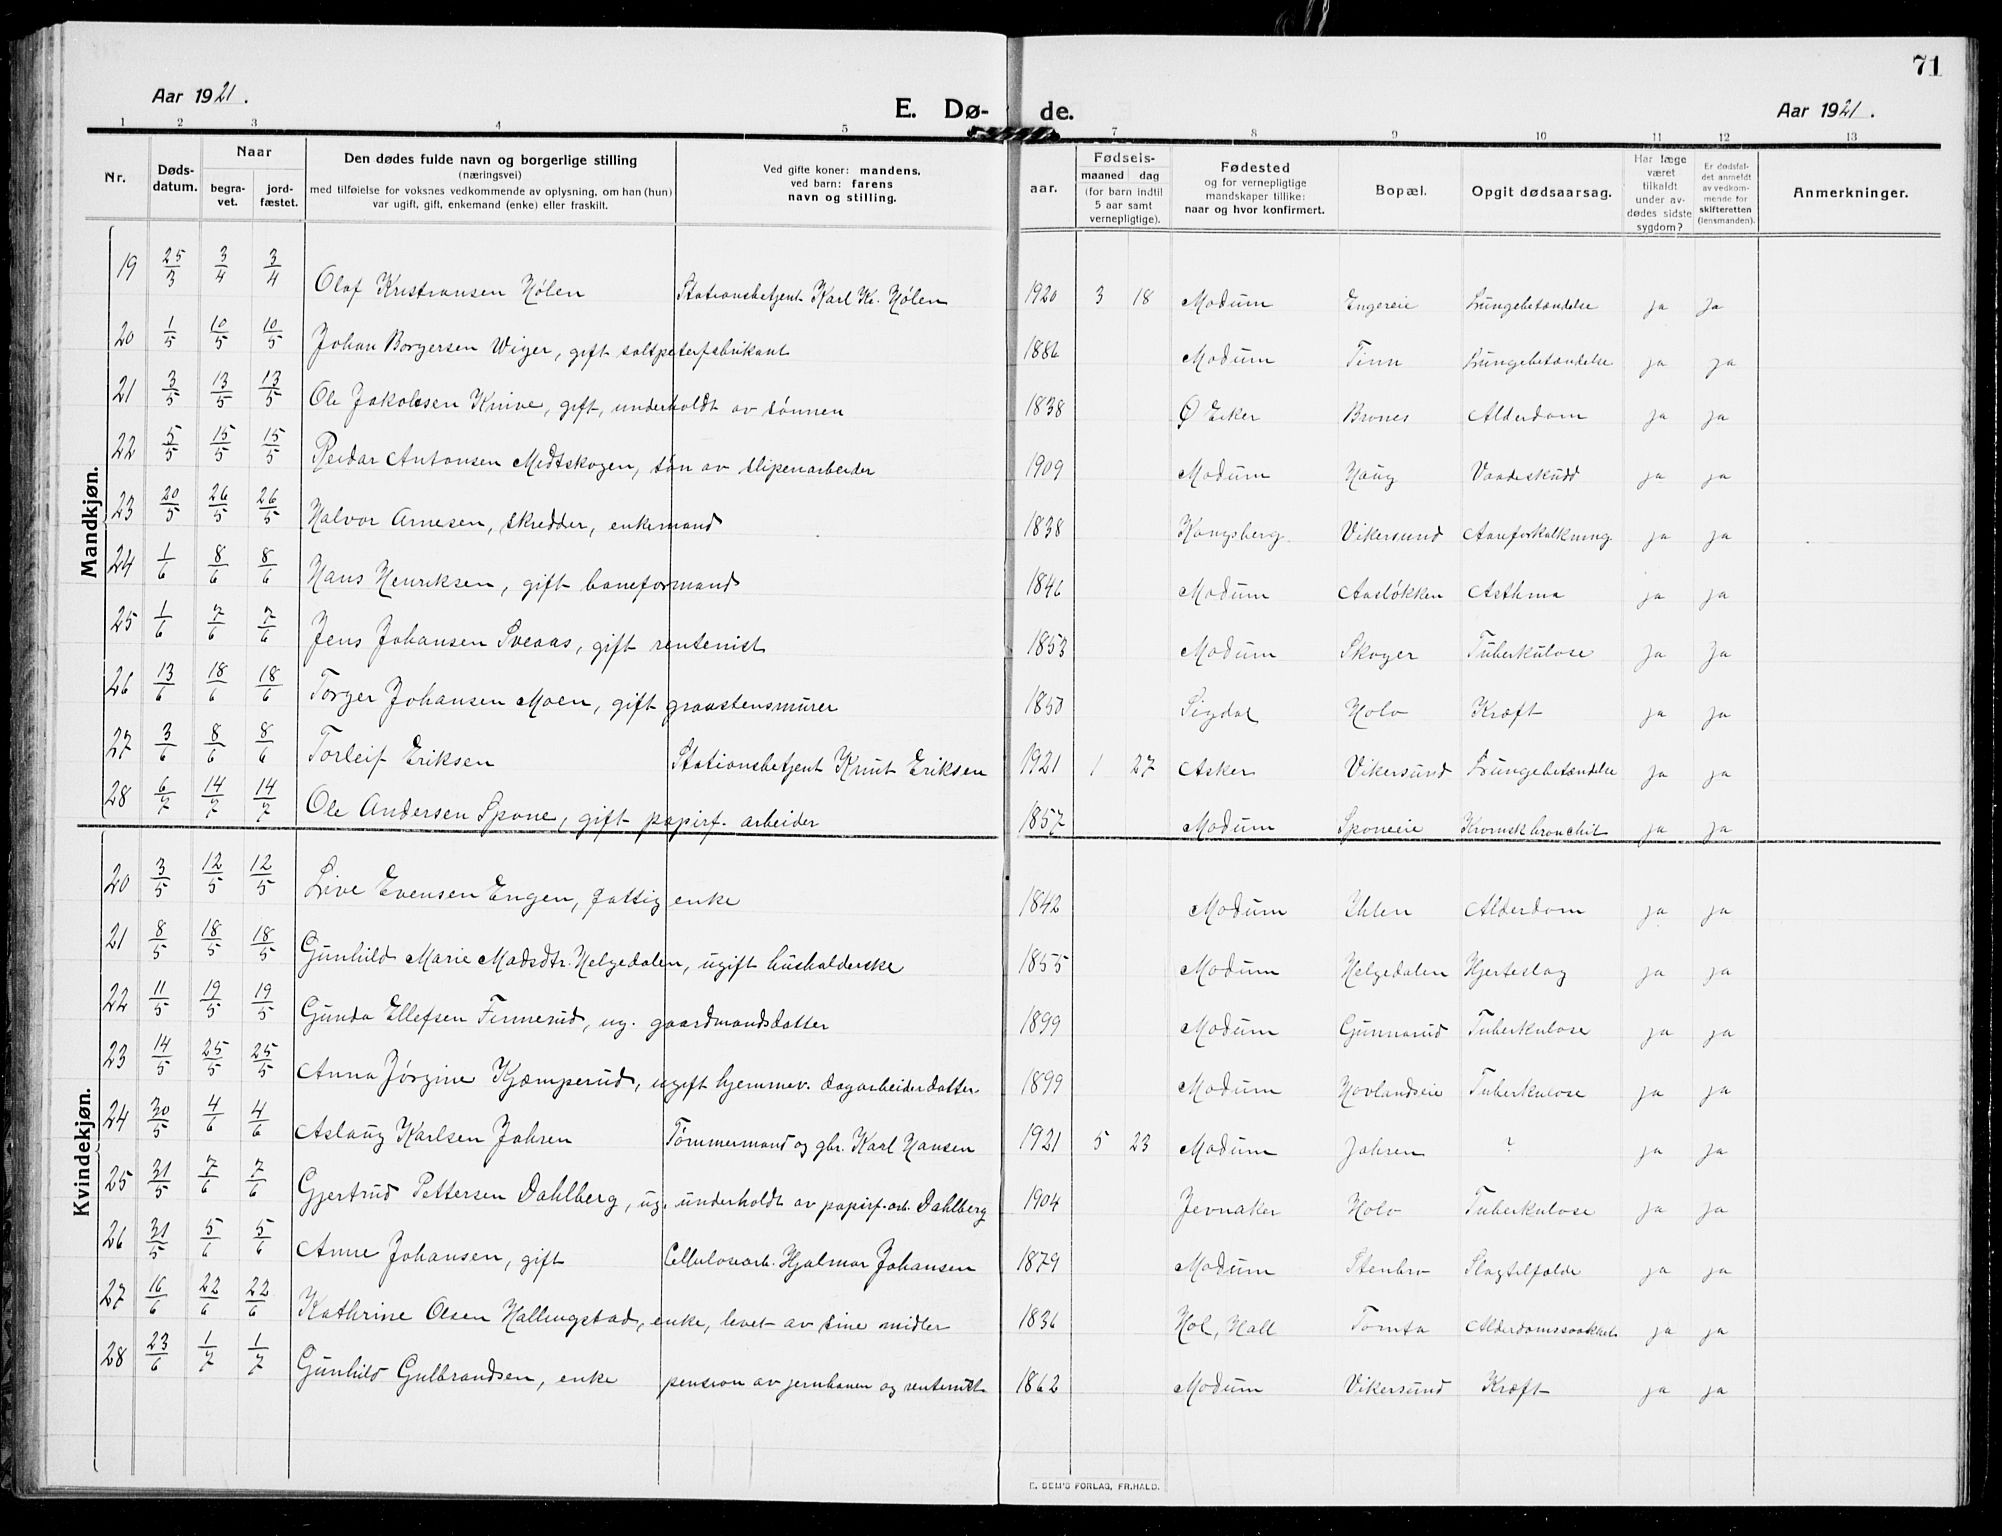 71
Aar 1921.
E. Dø-
de.
Aar 1921.
1 2 3 4 5 7 8 9 10 11 12 13
Nr.
Døds-
datum.
Naar
begra-
vet.
jord-
fæstet.
Den dødes fulde navn og borgerlige stilling
(næringsvei)
med tilføielse for voksnes vedkommende av oplysning, om han (hun)
var ugift, gift, enkemand (enke) eller fraskilt.
Ved gifte koner: mandens,
ved barn: farens
navn og stilling.
aar.
Fødsels-
maaned dag
(for barn indtil
5 aar samt
vernepligtige).
Fødested
og for vernepligtige
mandskaper tillike:
naar og hvor konfirmert.
Bopæl.
Opgit dødsaarsag.
Har læge
været
tilkaldt
under av-
dødes sidste
sygdom?
Er dødsfal-
det anmeldt
av vedkom-
mende for
skifteretten
(lensmanden).
Anmerkninger.
Mandkjøn.
19 25/3 3/4 3/4 Olaf Kristiansen Hølen Stationsbetjent Karl Kr. Hølen 1920 3 18 Modum Engereie Lungebetændelse ja Ja
20 1/5 10/5 10/5 Johan Borgersen Wiger, gift saltpeterfabrikant 1886 Modum Tinn Lungebetændelse ja ja
21 3/5 13/5 13/5 Ole Jakobsen Knive, gift, underholdt av sønnen 1838 Ø Eker Brones Alderdom ja ja
22 5/5 15/5 15/5 Reidar Antonsen Medtskogen, søn av slipenarbeider 1909 Modum Haug Vaadeskudd ja ja
23 20/5 26/5 26/5 Halvor Arnesen, skredder, enkemand 1838 Kongsberg Vikersund Aareforkalkning ja ja
24 1/6 8/6 8/6 Hans Henriksen, gift baneformand 1846 Modum Aasløkken Asthma ja ja
25 1/6 7/6 7/6 Jens Johansen Sveaas, gift rentenist 1853 Modum Skoger Tuberkulose Ja Ja
26 13/6 18/6 18/6 Torger Johansen Moen, gift graastensmurer 1850 Sigdal Holo Kræft ja ja
27 3/6 8/6 8/6 Torleif Eriksen Stationsbetjent Knut Eriksen 1921 1 27 Asker Vikersund Lungebetændelse ja ja
28 6/7 14/7 14/7 Ole Andersen Spone, gift papirf. arbeider 1857 Modum Sponeie Kronisk bronchit ja Ja
Kvindekjøn.
20 3/5 12/5 12/5 Live Evensen Engen, fattig enke 1842 Modum Ihlen Alderdom ja ja
21 8/5 18/5 18/5 Gunhild Marie Madsdtr. Helgedalen, ugift husholderske 1855 Modum Helgedalen Hjerteslag ja ja
22 11/5 19/5 19/5 Gunda Ellefsen Finnerud, ug. gaardmandsdatter 1899 Modum Gunnarud Tuberkulose ja ja
23 14/5 25/5 25/5 Anna Jørgine Kjæmperud, ugift hjemmev. dagarbeiderdatter 1899 Modum Hovlandseie Tuberkulose ja ja
24 30/5 4/6 4/6 Aslaug Karlsen Jahren Tømmermand og gbr. Karl Hansen 1921 5 23 Modum Jahren ? ja ja
25 31/5 7/6 7/6 Gjertrud Pettersen Dahlberg, ug. underholdt av papirf.arb. Dahlberg 1904 Jevnaker Holo Tuberkulose ja ja
26 31/5 5/6 5/6 Anne Johansen, gift Cellulosearb. Hjalmar Johansen 1879 Modum Stenbro Slagtilfælde ja ja
27 16/6 22/6 22/6 Kathrine Olsen Hallingstad, enke, levet av sine midler 1836 Hol, Hall Tomta Alderdomssvakhet ja ja
28 23/6 1/7 1/7 Gunhild Gulbrandsen, enke pension av jernbanen og rentenist 1862 Modum Vikersund Kræft ja ja
E. SEM'S FORLAG, FR.HALD.